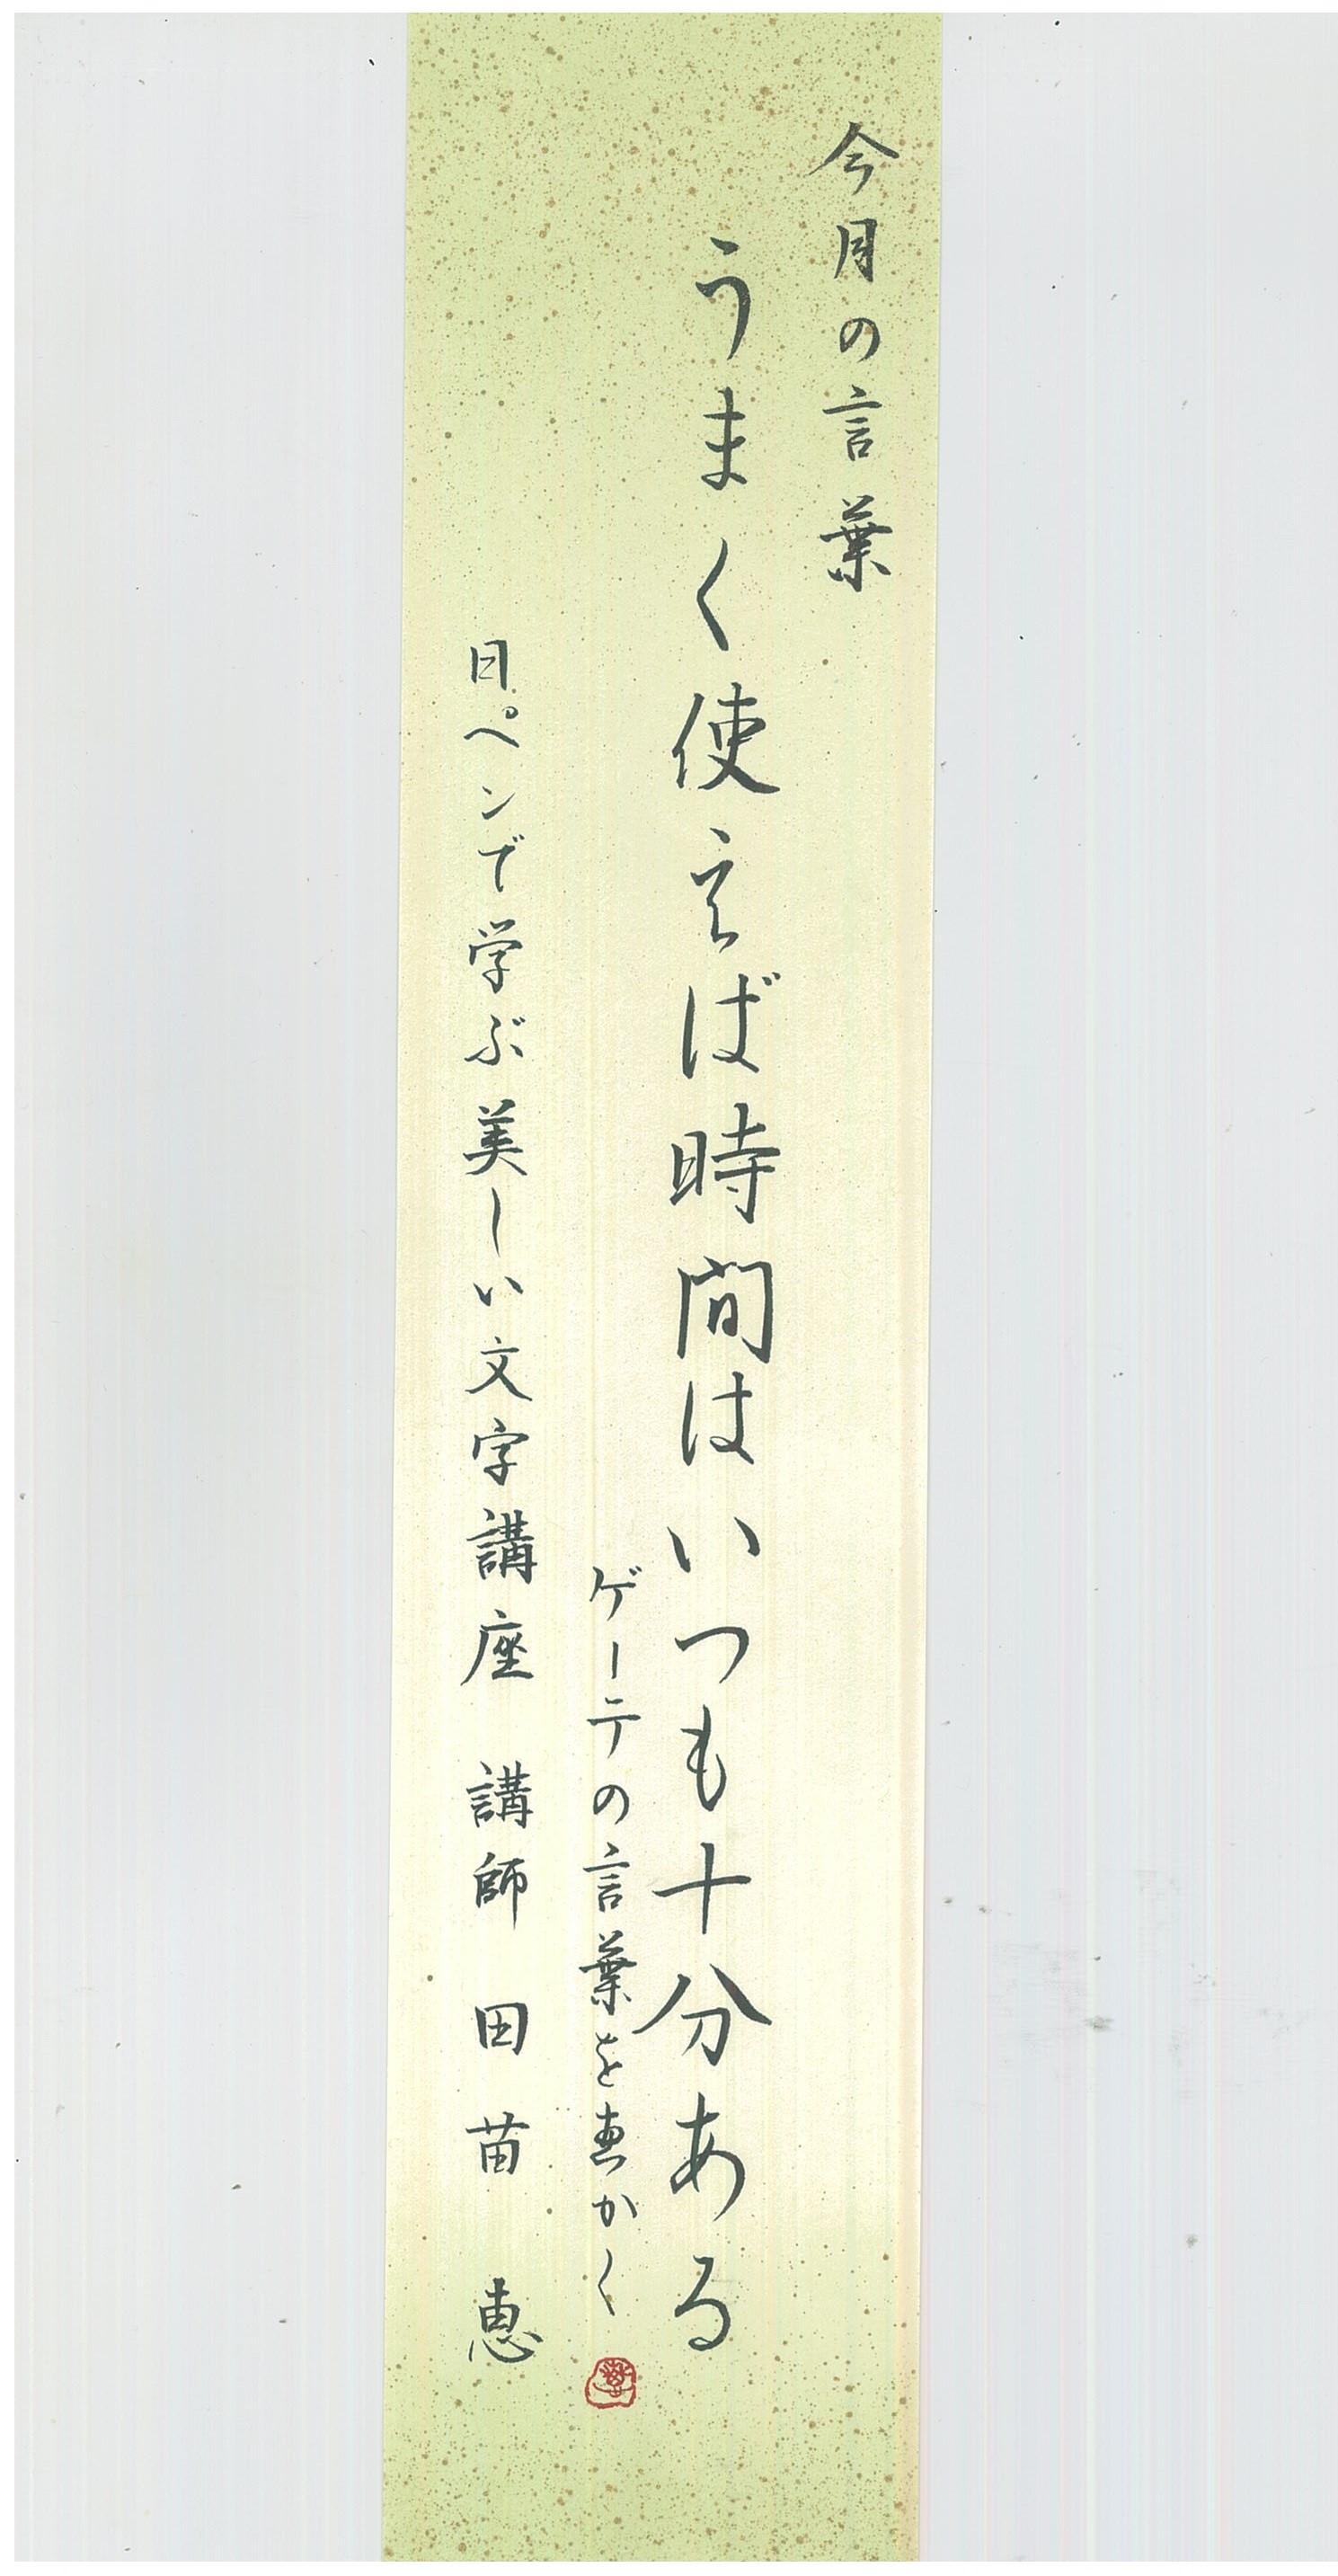 今月の言葉
うまく使えば時間はいつも十分ある
ゲーテの言葉を恵かく
日ペンで学ぶ美しい文字講座 講師 田苗 恵